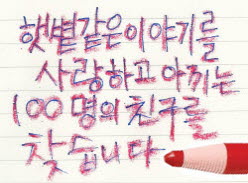 햇볕같은이야기를
사랑하고 아끼는
100명의 친구를
찾습니다